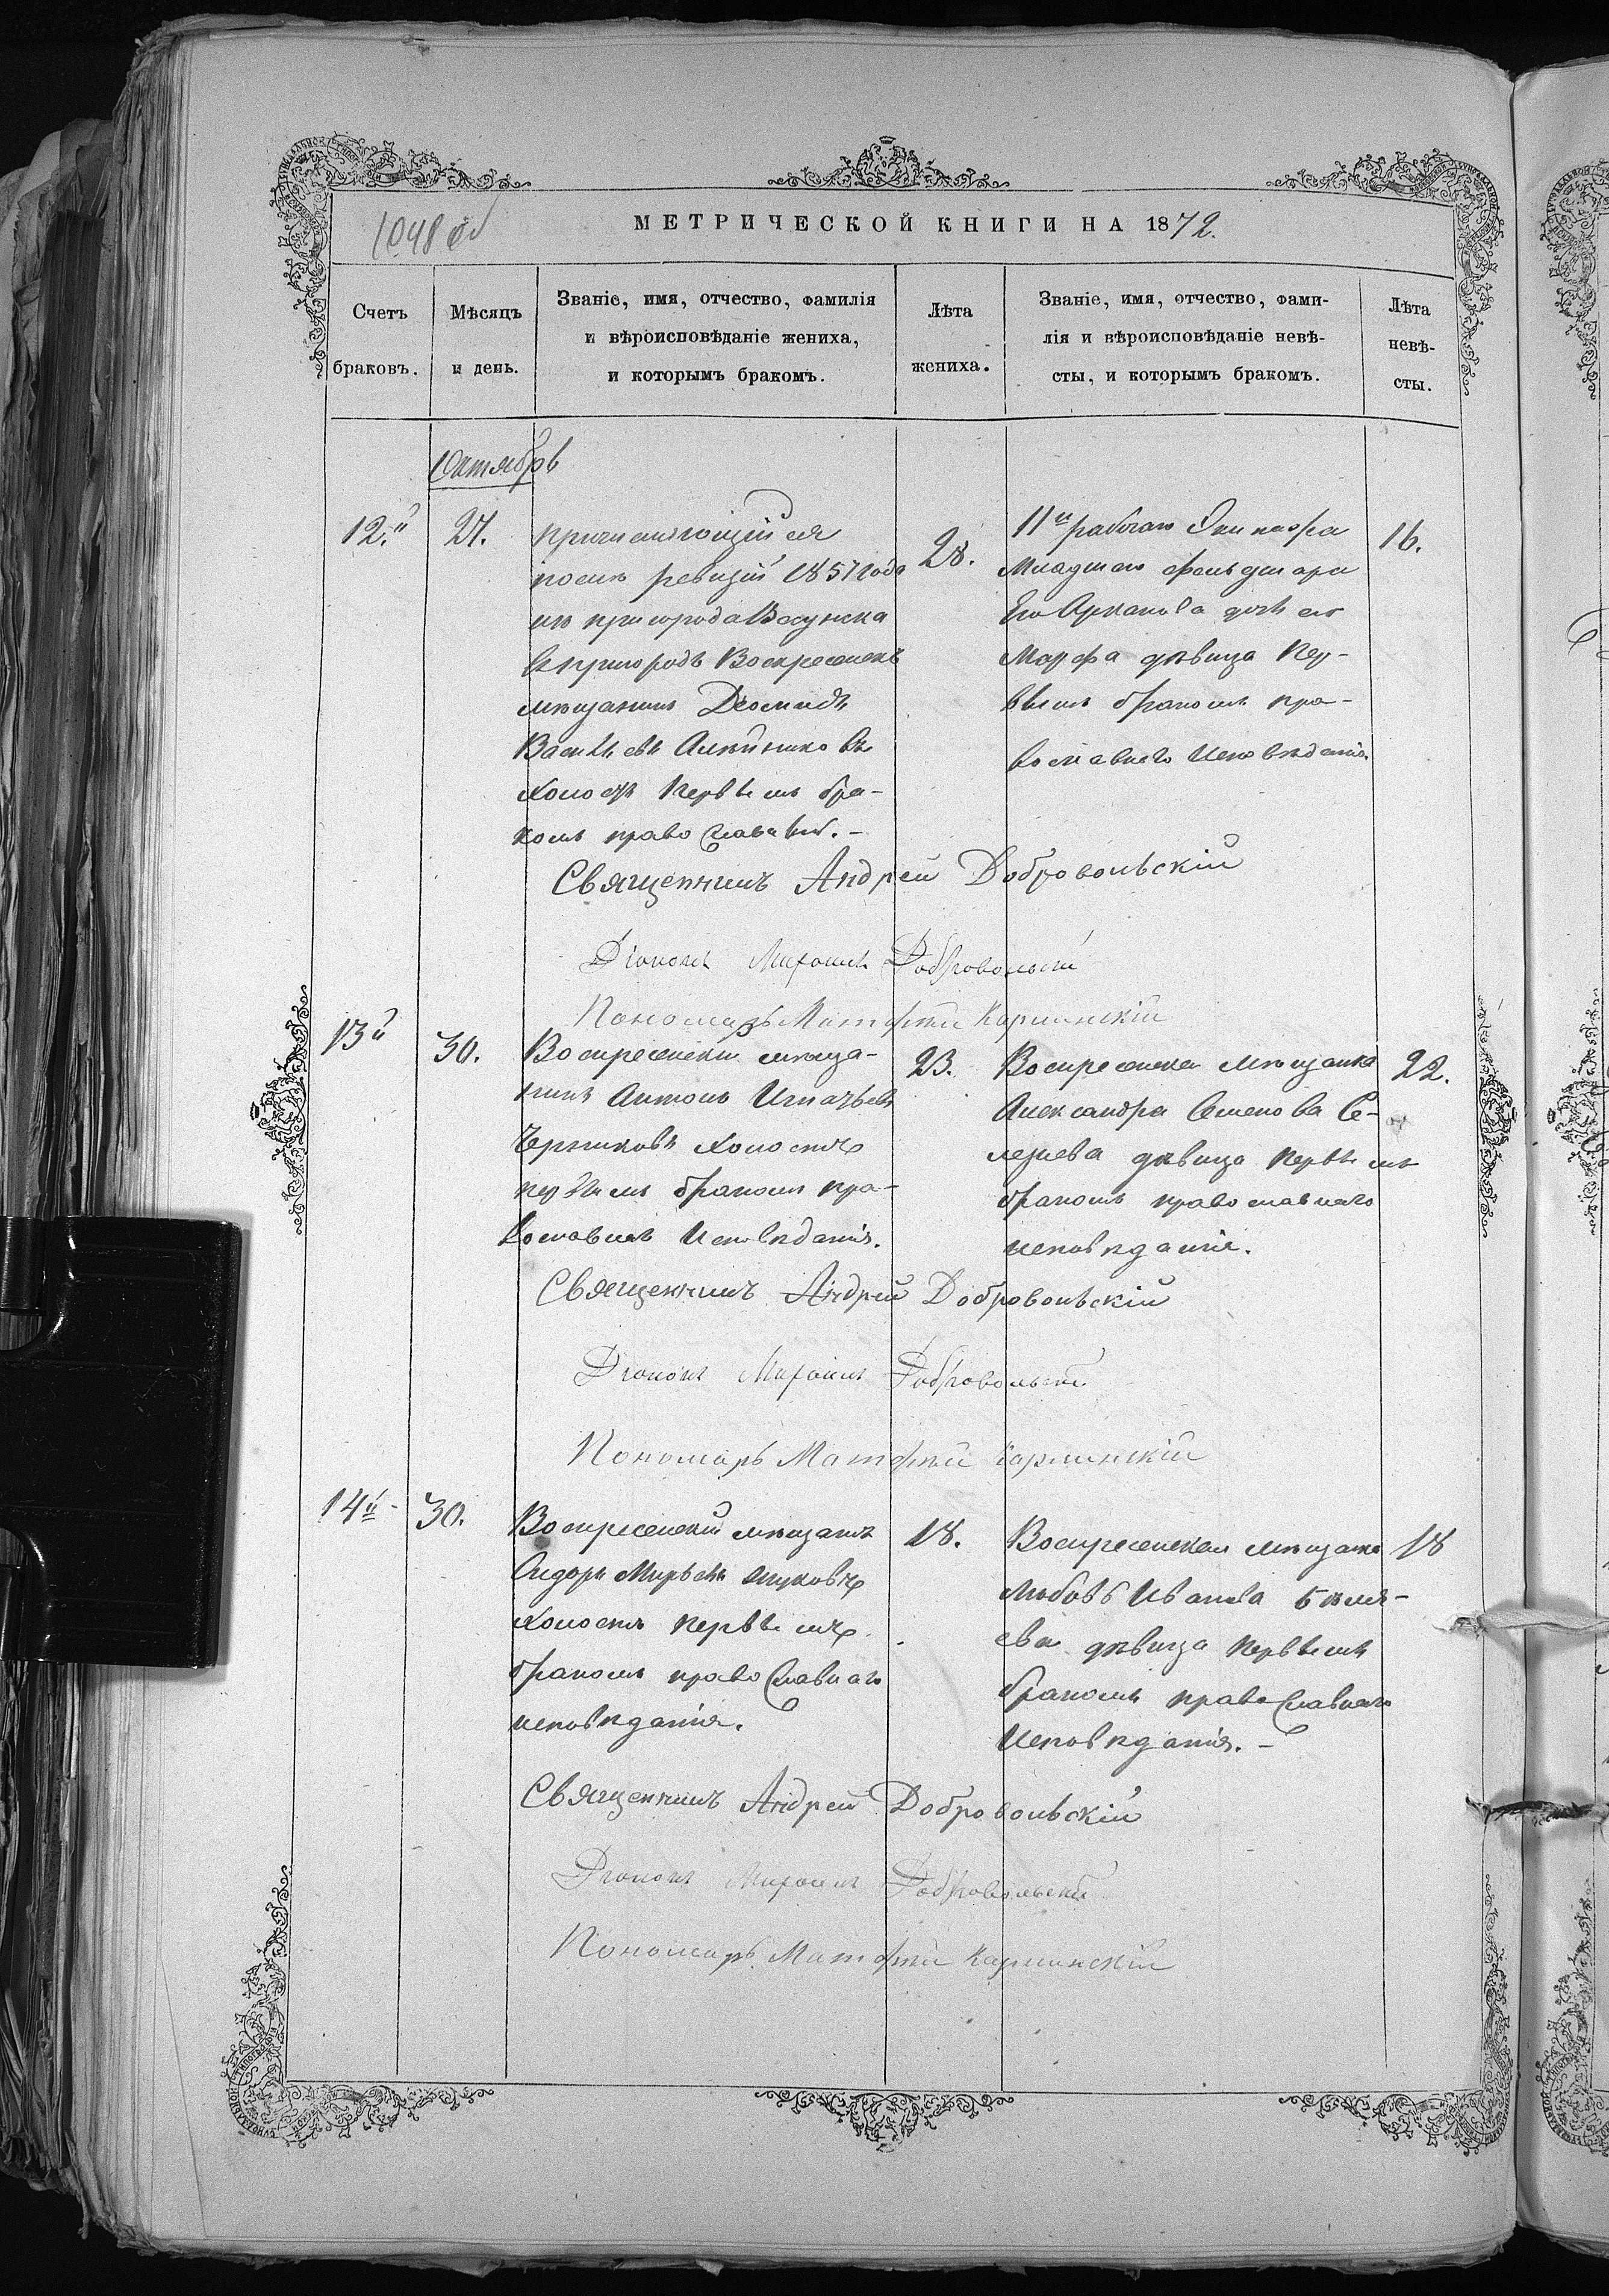 1048 об
МЕТРИЧЕСКОЙ КНИГИ НА 1872.
Счетъ браковъ.
Мѣсяцъ и день.
Званіе, имя, отчество, фамилія
и вѣроисповѣданіе жениха,
и которымъ бракомъ.
Лѣта жениха.
Званіе, имя, отчество, фами-
лія и вѣроисповѣданіе невѣ-
сты, и которымъ бракомъ.
Лѣта невѣ-
сты.
Октябрь
12.й
27.
причисляющійся
послѣ ревизіи 1857 года
изъ пригорода
въ пригородъ Воскресенскъ
мѣщанинъ Діомидъ
Васильевъ
холостъ первымъ бра-
комъ православный. –
28.
11го рабочаго Экипажа
Младшаго фельдшера
дочь его
Марфа дѣвица пер-
вымъ бракомъ пра-
вославнаго Исповѣданія.
16.
Священникъ Андрей Добровольскій
Діаконъ Михаилъ Добровольскій
Пономарь Матфей Карминскій
13й
30.
Воскресенскій мѣща-
нинъ Антонъ Игнатьевъ
холостъ
первымъ бракомъ пра-
вославнаго Исповѣданія.
23.
Воскресенская мѣщанка
Александра Семенова Се-
лезнева дѣвица первымъ
бракомъ православнаго
исповѣданія.
22.
Священникъ Андрей Добровольскій
Діаконъ Михаилъ Добровольскій
Пономарь Матфей Карминскій
14й
30.
Воскресенскій мѣщанинъ
Сидоръ
холостъ первымъ
бракомъ православнаго
исповѣданія.
18.
Воскресенская мѣщанка
Любовь Иванова Бѣля-
ева дѣвица первымъ
бракомъ православнаго
Исповѣданія. –
18
Священникъ Андрей Добровольскій
Діаконъ Михаилъ Добровольскій
Пономарь Матфей Карминскій